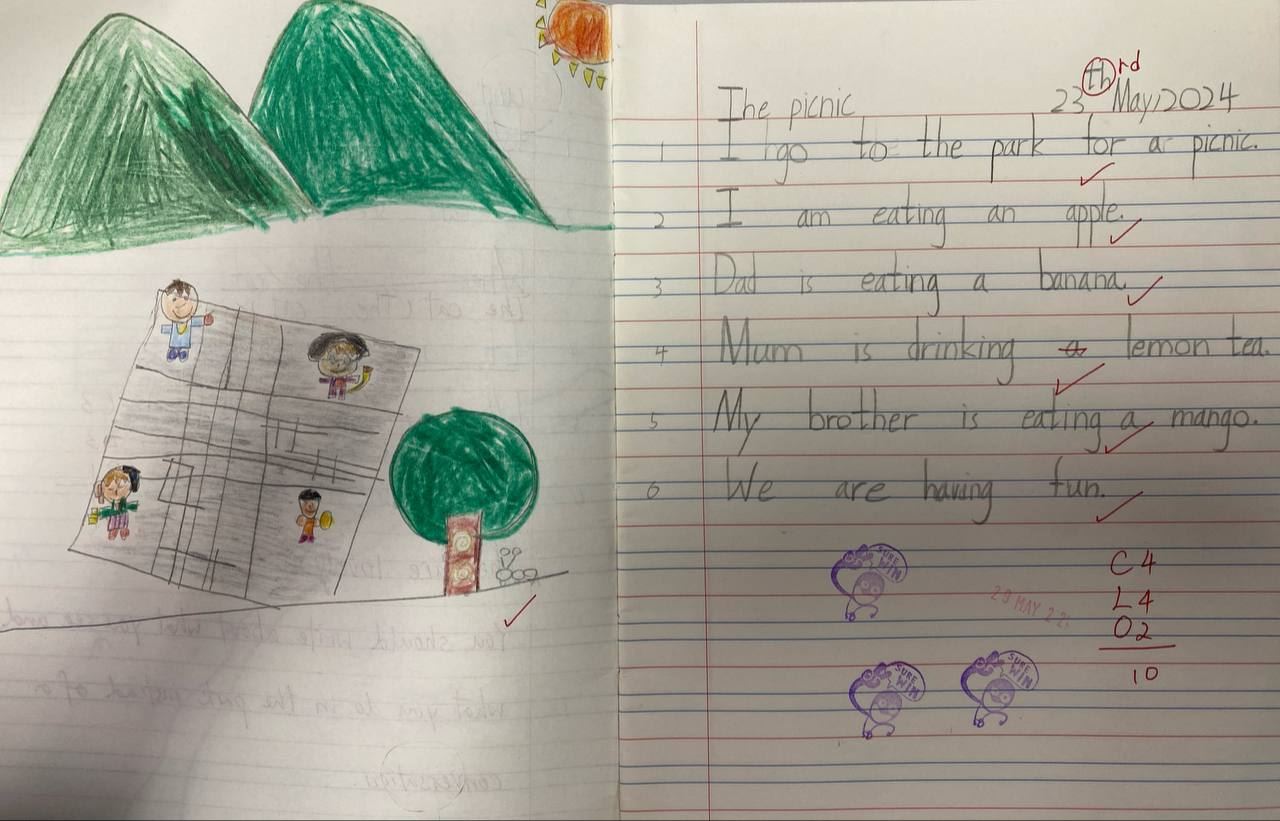 The picnic 23th rd May, 2024
1 I go to the park for a picnic.
2 I am eating an apple.
3 Dad is eating a banana.
4 Mum is drinking a lemon tea.
5 My brother is eating a mango.
6 We are having fun.
SURE WIN
29 MAY
SURE WIN
SURE WIN
C 4
L 4
O 2
10